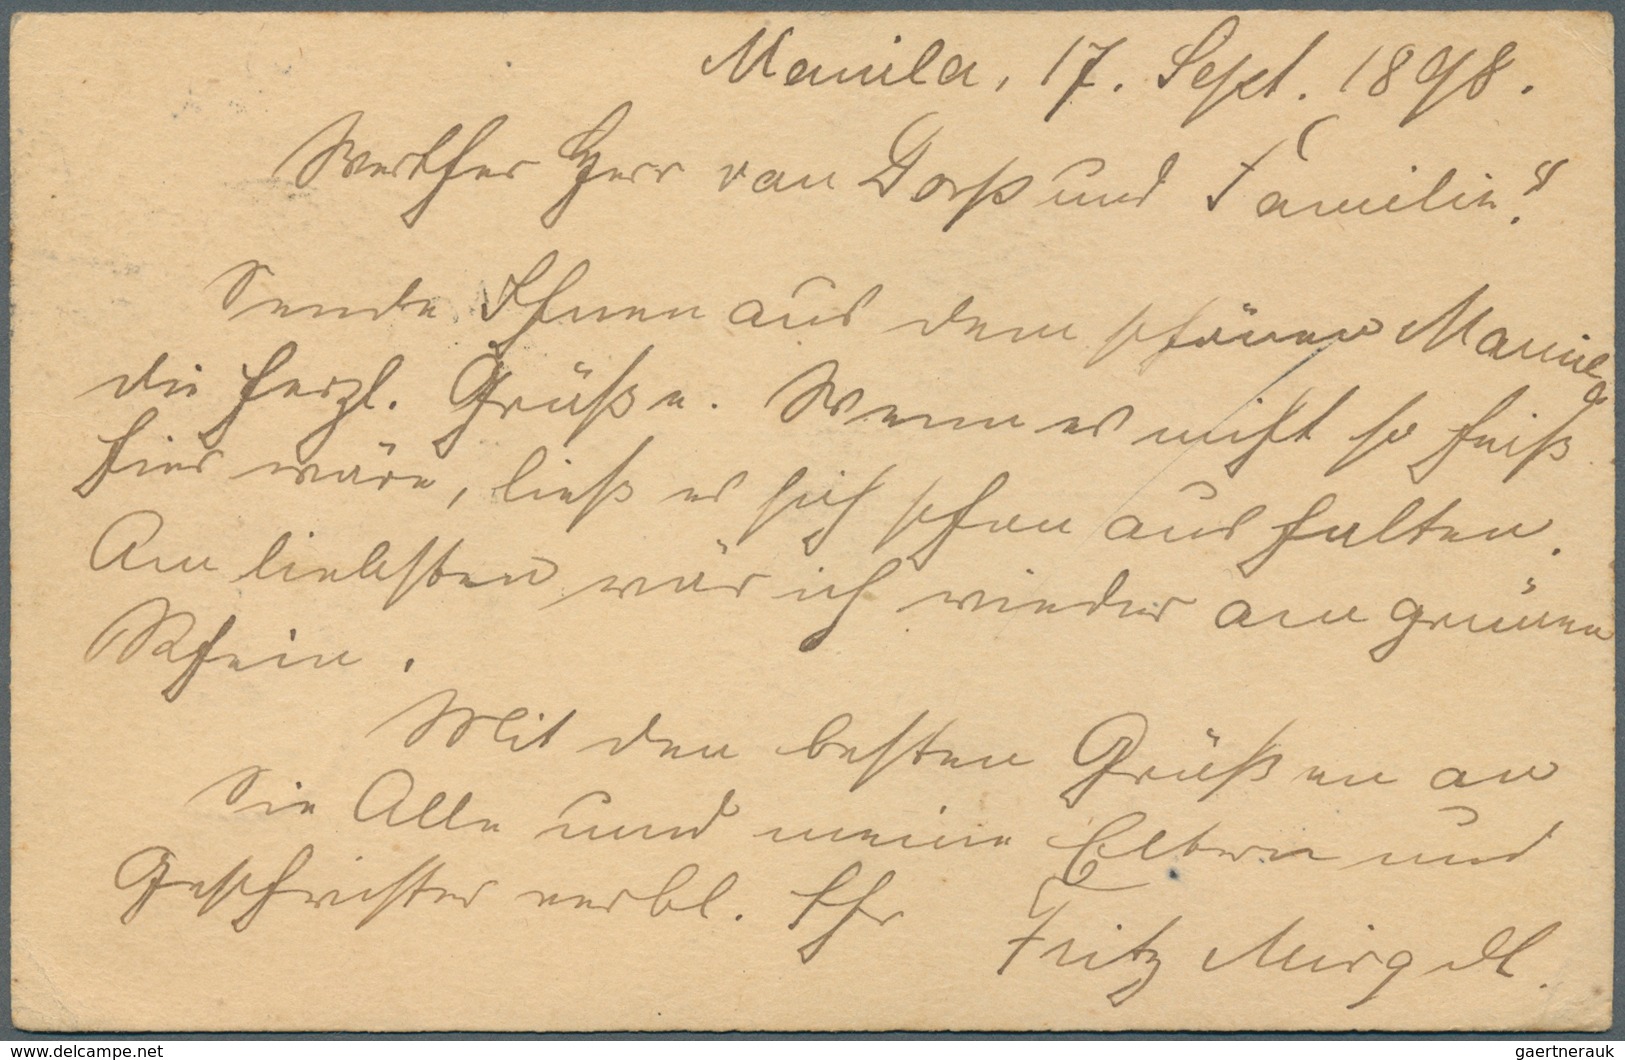 Manila, 17. Sept. 1898.
Werther Herr van Dorp und Familie!
Sende Ihnen aus dem schönen Manila
die herzl. Grüße. Wenn es nicht so heiß
hier wäre, ließ es sich schon aushalten.
Am liebsten wär ich wieder am grünen
Rhein.
Mit den besten Grüßen an
Sie Alle und meine Eltern und
Geschwister verbl. Ihr
Fritz
delcampe.net
gaertnerauk